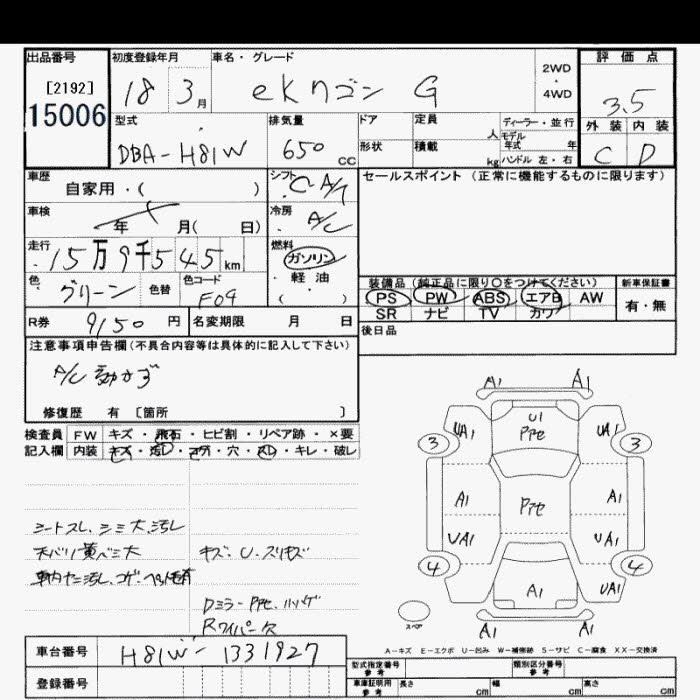 出品番号 初度登録年月 車名・グレード 2WD・4WD 評価点
[2192] 18 3月 eKワゴン G 3.5
15006 型式 排気量 ドア 定員 人 ディーラー・並行 外装 内装
DBA-H81W 650 cc 形状 積載 kg モデル年式 年 ハンドル 左・右 C D
車歴 自家用・( ) シフト C-A/T セールスポイント (正常に機能するものに限ります)
車検 年 月( 日) 冷房 A/C
走行 15万9千545km 燃料 ガソリン・軽油・( )
色 グリーン 色替 色コード F09 装備品 (純正品に限り○をつけてください) 新車保証書
PS PW ABS エアB AW 有・無
R券 9150円 名変期限 月 日 SR ナビ TV カワ
後日品
注意事項申告欄 (不具合内容等は具体的に記入して下さい)
A/C 動かず
修復歴 有 [箇所 ]
検査員 FW キズ・飛石・ヒビ割・リペア跡・×要
記入欄 内装 キズ・汚レ・コゲ・穴・スレ・キレ・破レ
A1 A1
U1
UA1 Pアセ UA1
3 3
A1 Pアセ A1
UA1 UA1
4 4
A1 UA1
スペア A1 A1
シートスレ、シミ大、汚レ
天バリ黄ベミ大 キズ、U、スリキズ
車内ヤニ汚レ、コゲ、ペット毛有
DミラーPアセ、ハゲ
Rワイパー欠
A-キズ E-エクボ U-凹み W-補修跡 S-サビ C-腐食 XX-交換済
車台番号 H81W-1331927
登録番号
型式指定番号 参考 類別区分番号 参考
車庫証明用 参考 長さ cm 幅 cm 高さ cm